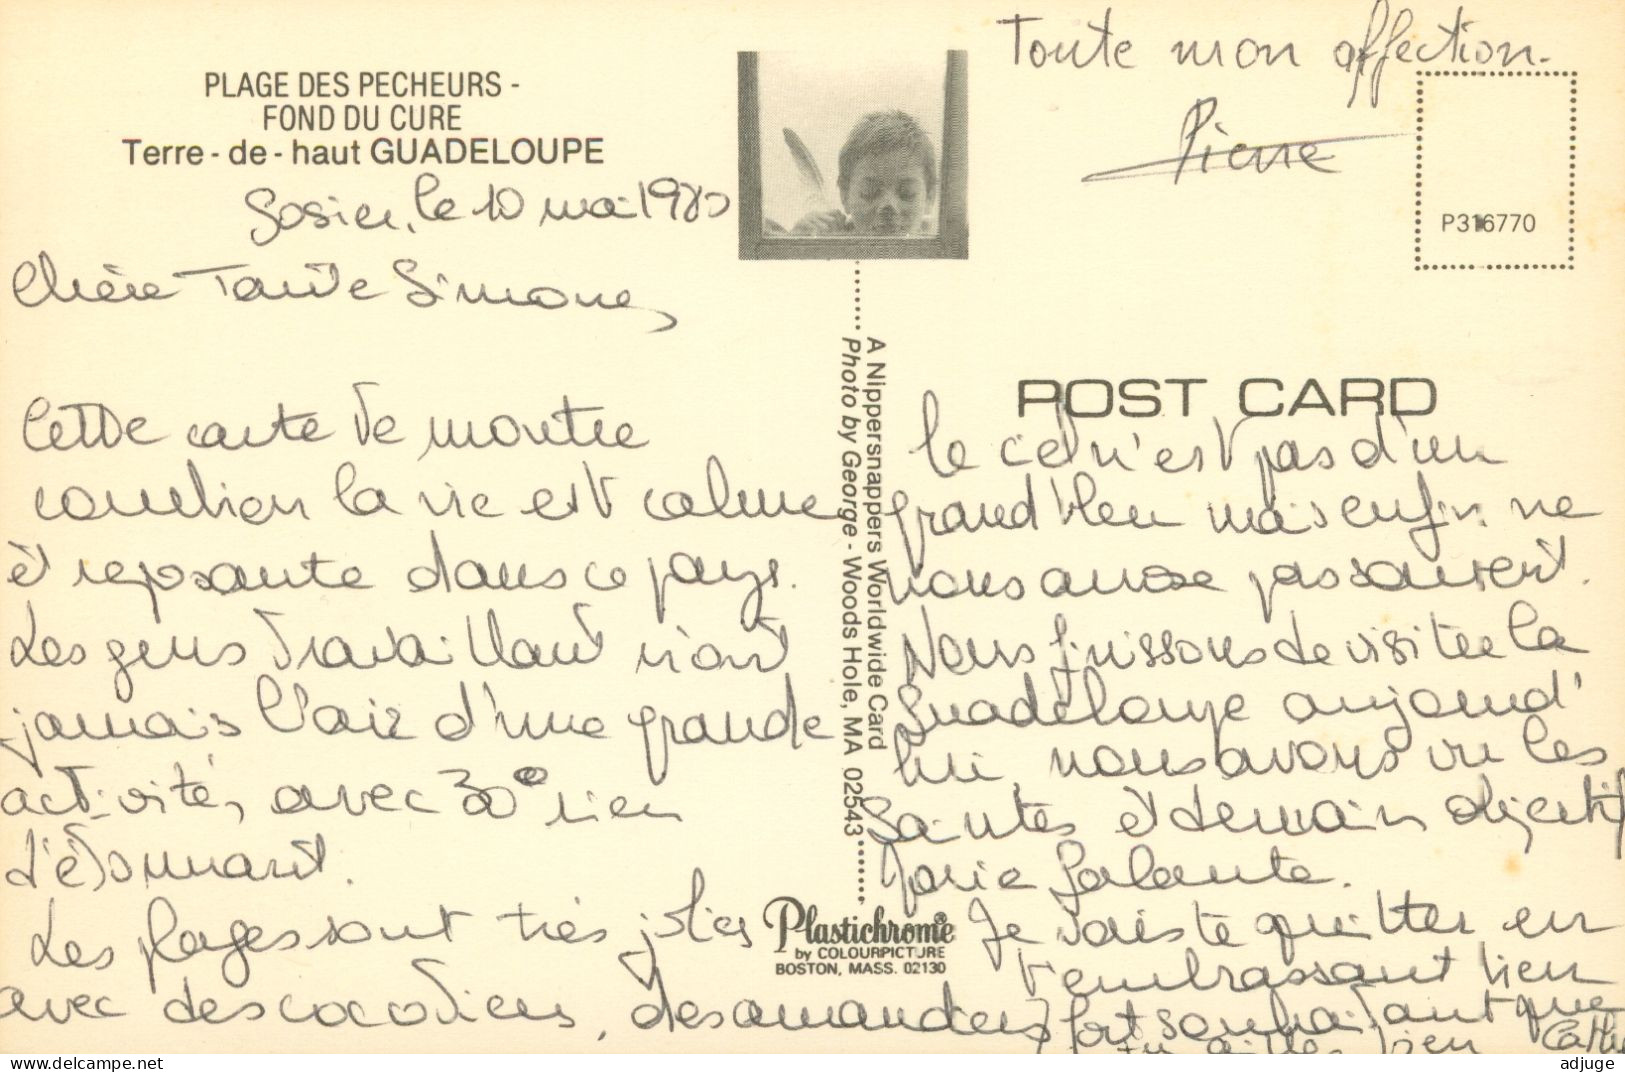 PLAGE DES PECHEURS -
FOND DU CURE
Terre - de - haut GUADELOUPE
Gosier, le 10 mai 1980
Chère Tante Simone,
Cette carte te montre
combien la vie est calme
et reposante dans ce pays.
Les gens travaillant n'ont
jamais l'air d'une grande
activité, avec 30° rien
d'étonnant.
Les plages sont très jolies
avec des cocotiers, des amandiers
A Nippersnappers Worldwide Card
Photo by George - Woods Hole, MA 02543
Plastichrome®
by COLOURPICTURE
BOSTON, MASS. 02130
Toute mon affection.
Pierre
P316770
POST CARD
le ciel n'est pas d'un
grand bleu mais enfin ne
nous arrose pas souvent.
Nous finissons de visiter la
Guadeloupe aujourd'
hui, nous avons vu les
Saintes et demain objectif
Marie Galante.
Je vais te quitter en
t'embrassant bien
fort souhaitant que
tu ailles bien
delcampe.net
adjuge